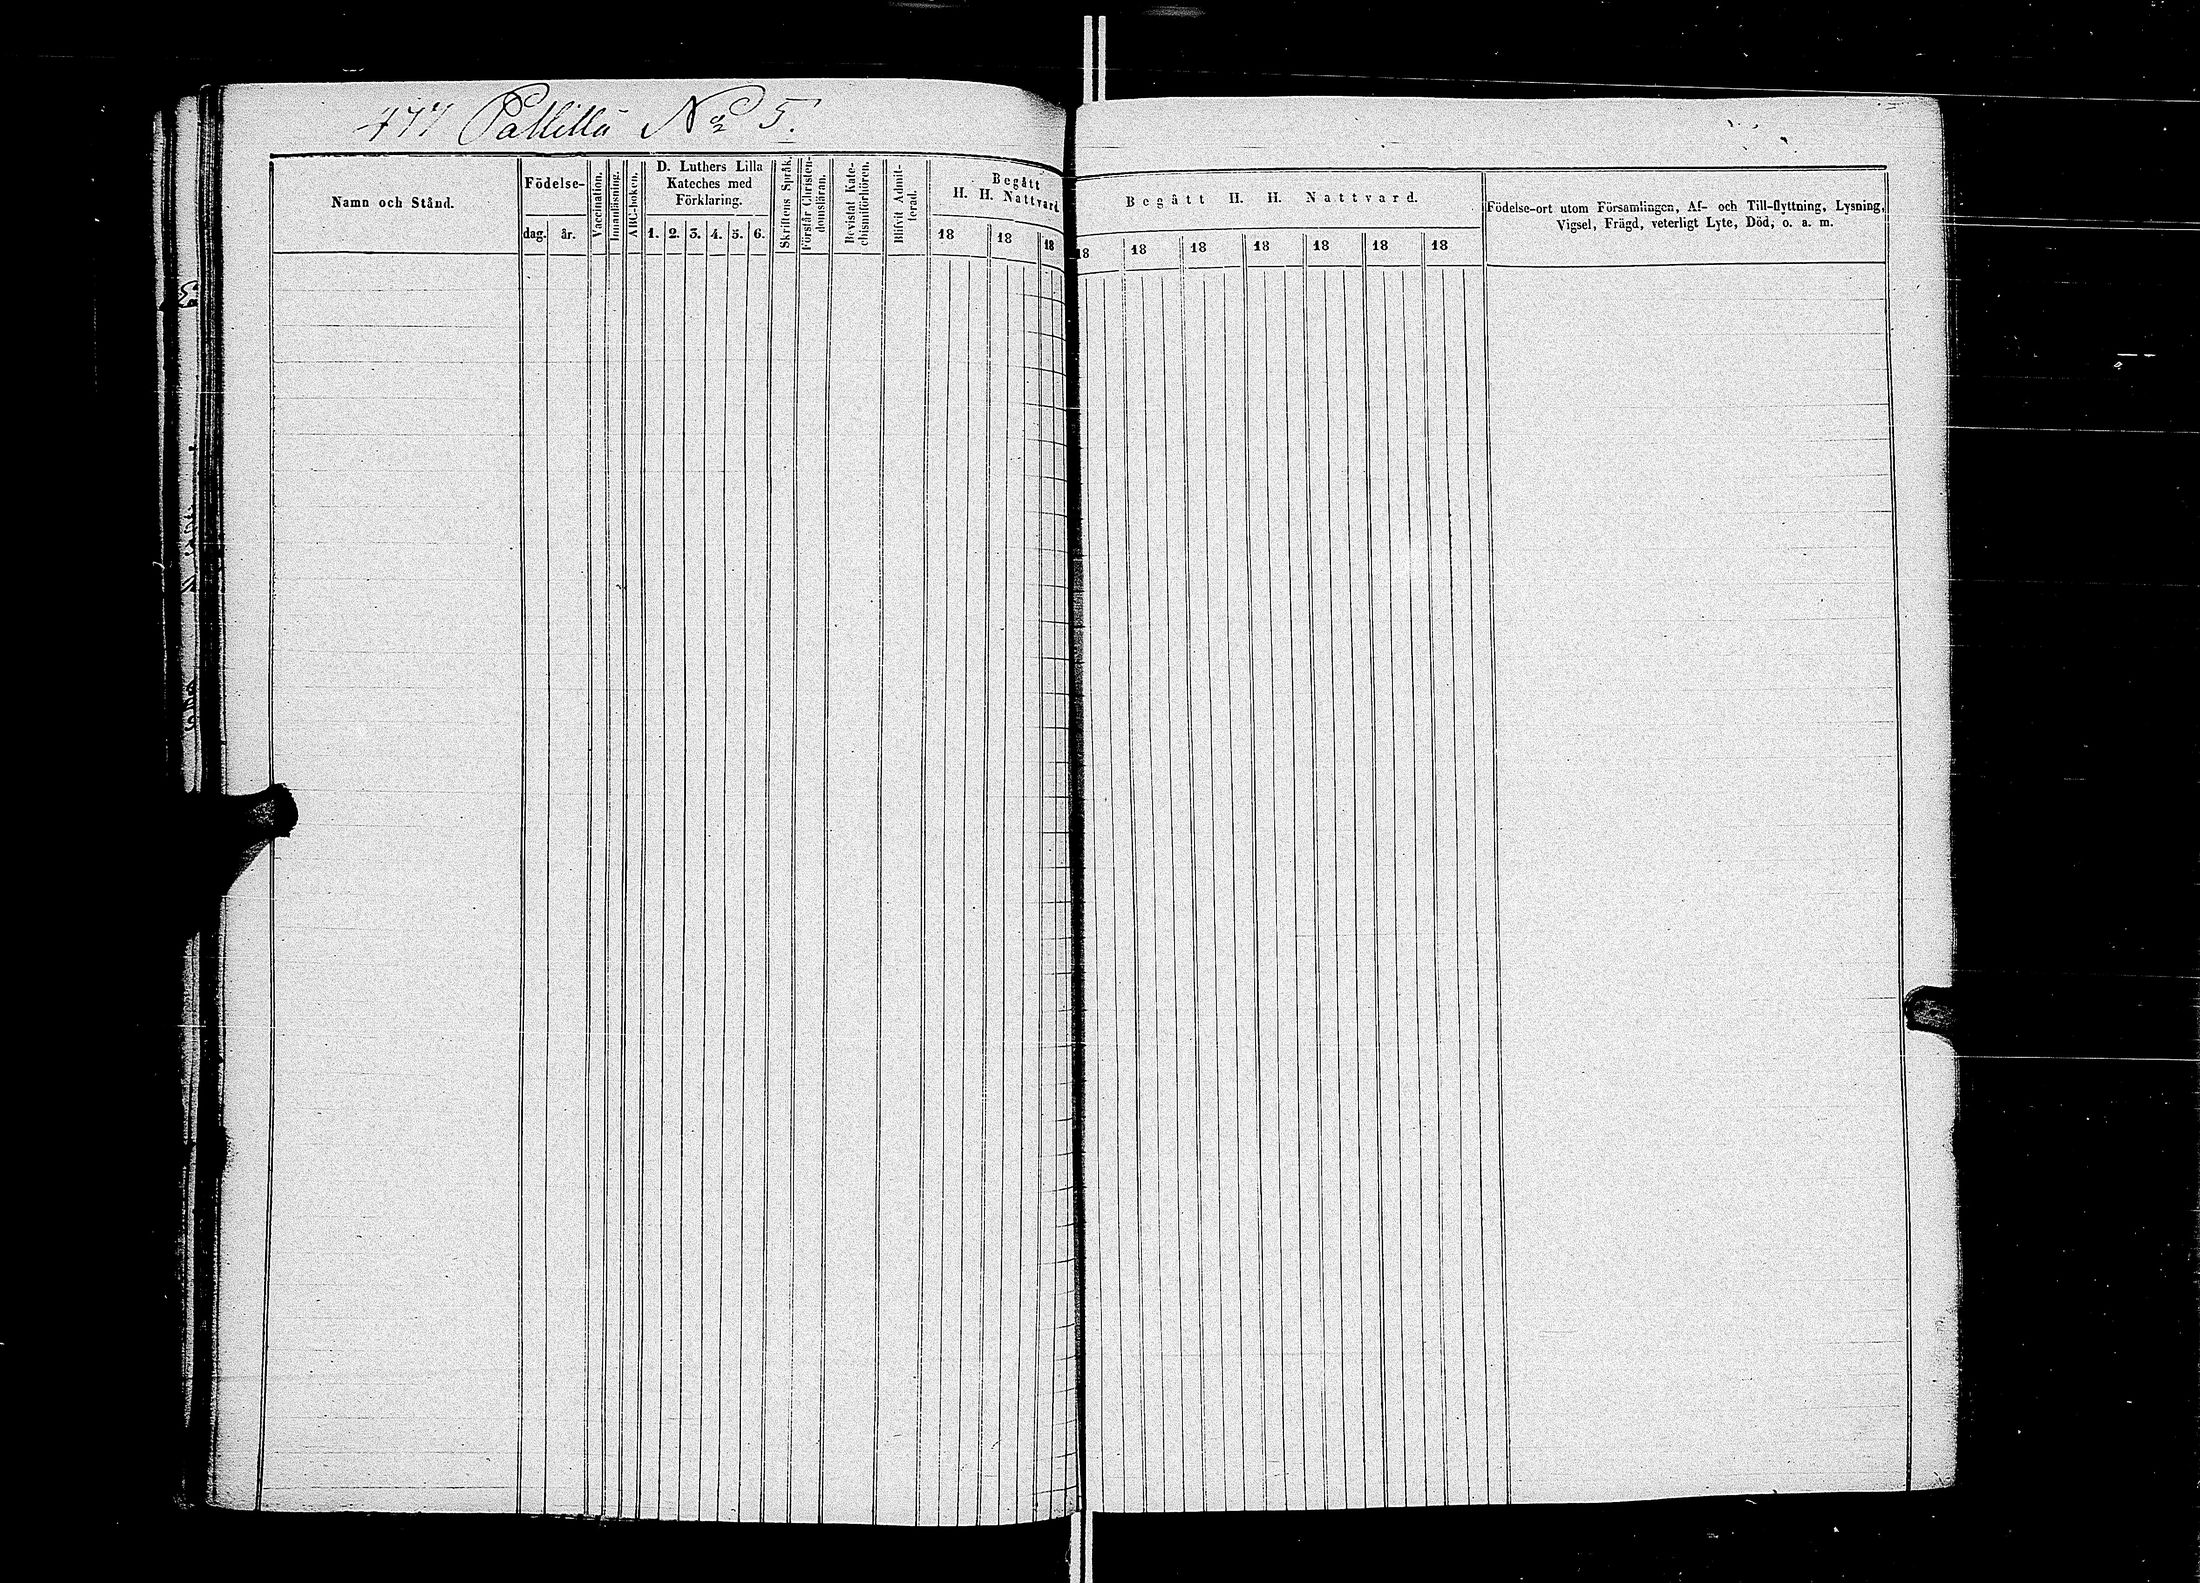 477 Pallilä No 5.
Namn och Stånd.
Födelse-
dag. år.
Vaccination.
Innanläsning.
ABC-boken.
D. Luthers Lilla
Kateches med
Förklaring.
1. 2. 3. 4. 5. 6.
Skriftens Språk.
Förstår Christen-
domsläran.
Bevistat Kate-
chismiförhören.
Blifvit Admit-
terad.
Begått
H. H. Nattvard.
18 18 18
Begått H. H. Nattvard.
18 18 18 18 18 18 18
Födelse-ort utom Församlingen, Af- och Till-flyttning, Lysning,
Vigsel, Frägd, veterligt Lyte, Död, o. a. m.